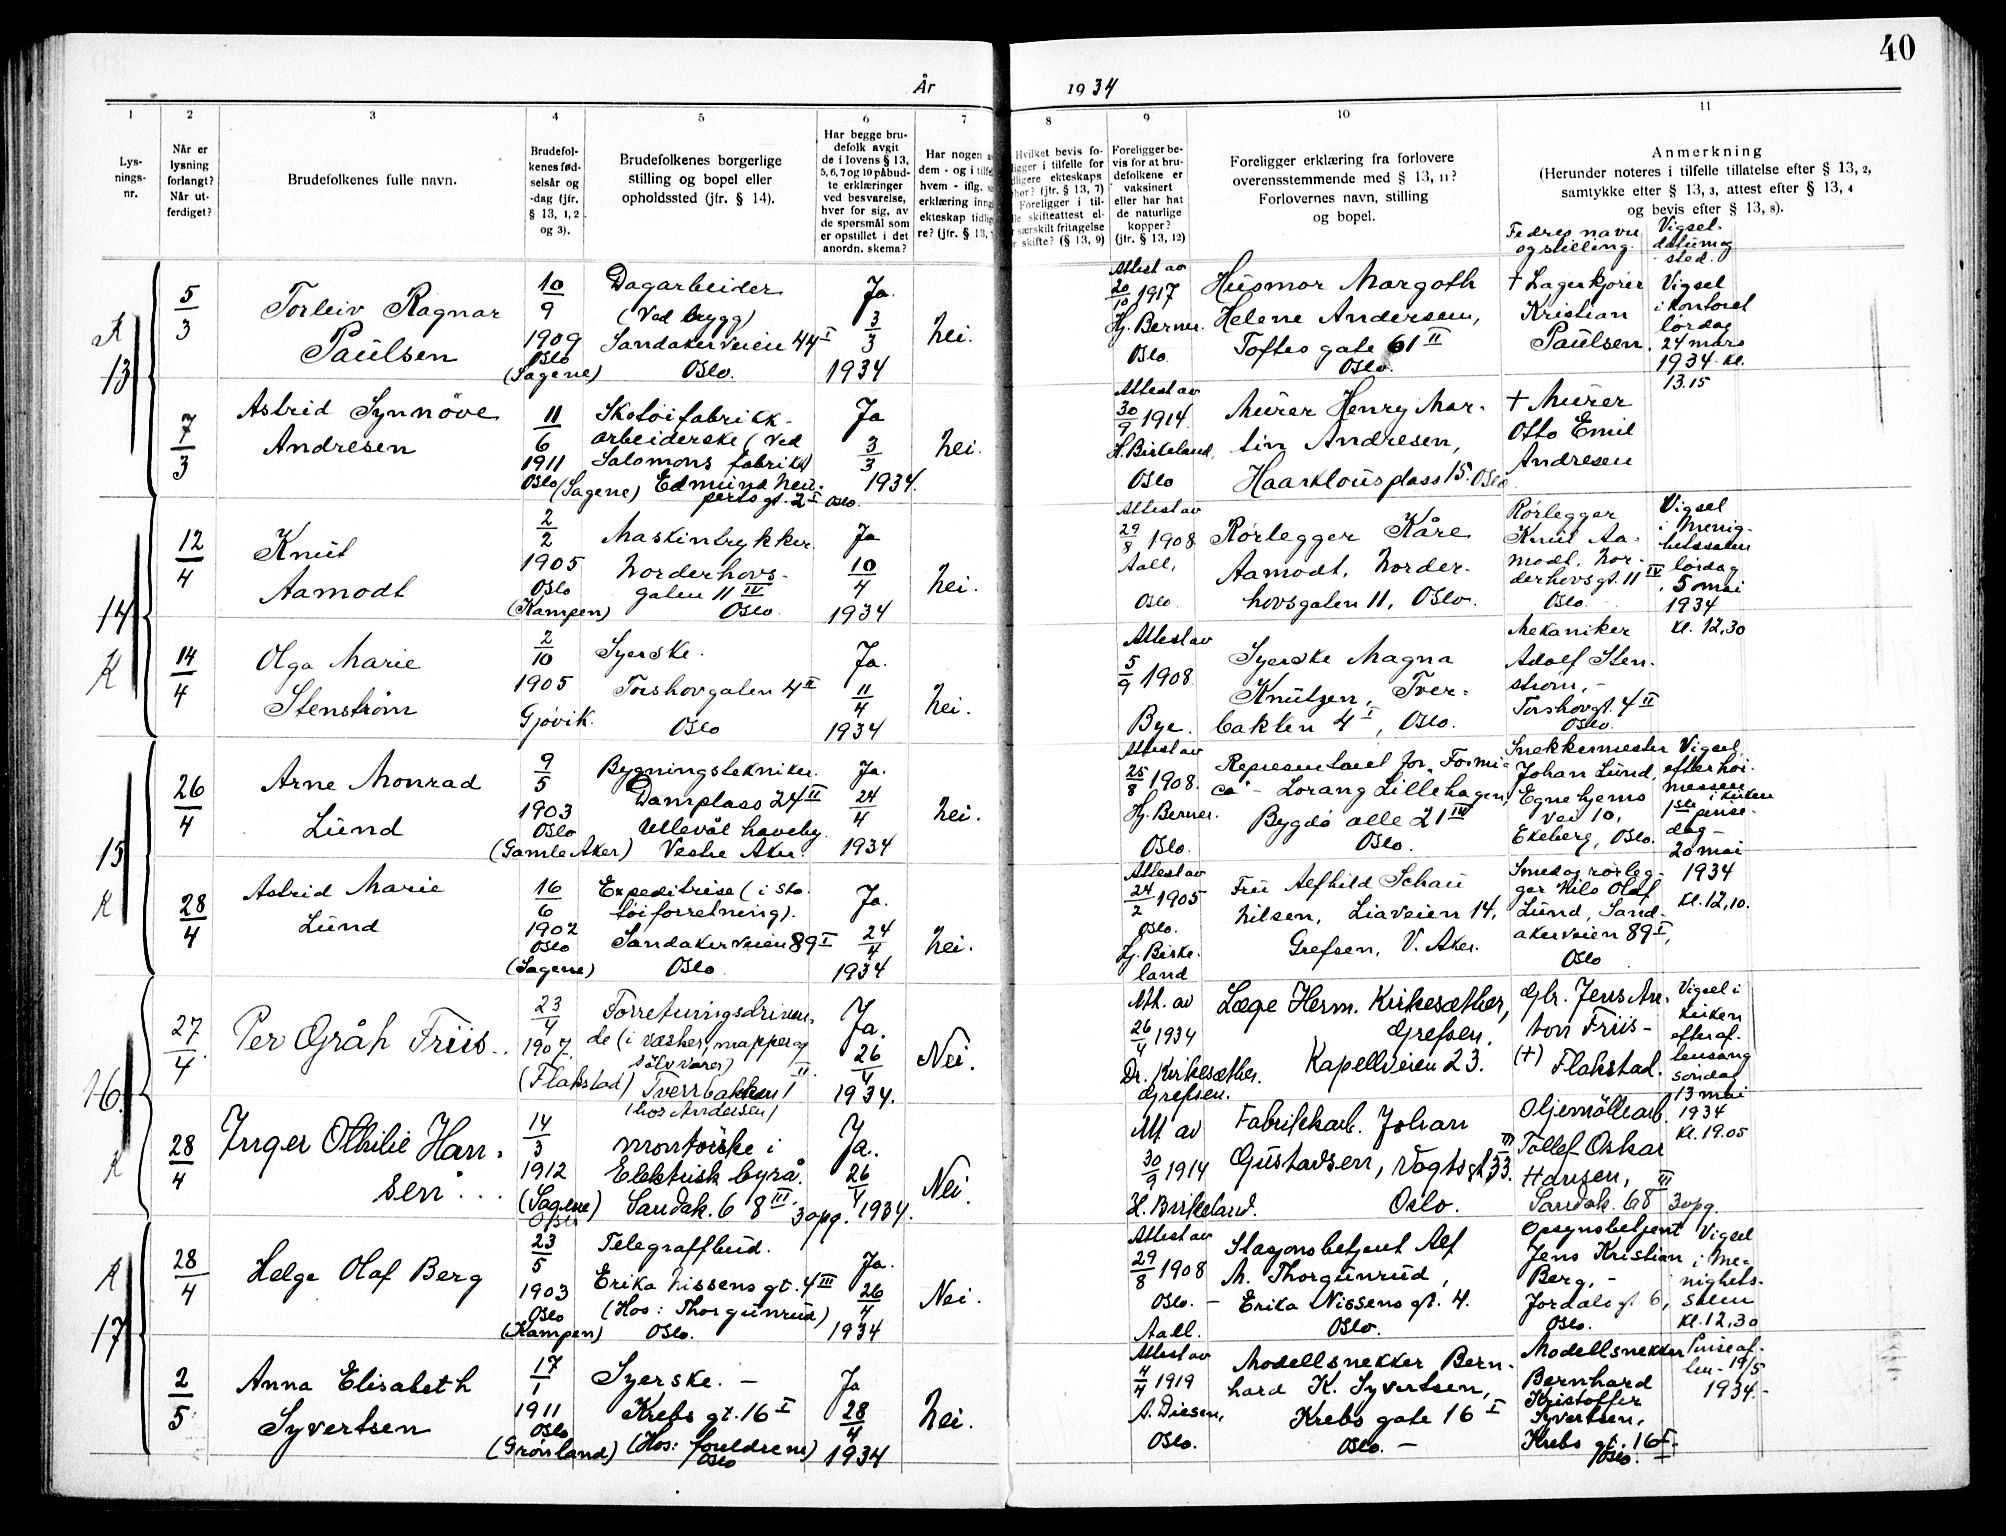 40
År 1934
1 2 3 4 5 6 7 8 9 10 11
Lys-
nings-
nr.
Når er
lysning
forlangt?
Når ut-
ferdiget?
Brudefolkenes fulle navn.
Brudefol-
kenes fød-
selsår og
-dag (jfr.
§ 13, 1, 2
og 3).
Brudefolkenes borgerlige
stilling og bopel eller
opholdssted (jfr. § 14).
Har begge bru-
defolk avgit
de i lovens § 13,
5, 6, 7 og 10 påbud-
te erklæringer
ved besvarelse,
hver for sig, av
de spørsmål som
er opstillet i det
anordn. skema?
Har nogen
dem - og i tilf
hvem - iflg.
erklæring inng
ekteskap tidlig
re? (jfr. § 13,
Hvilket bevis fo-
ligger i tilfelle for
dligere ekteskaps
hør? (jfr. § 13, 7)
Foreligger i til-
le skifteattest el-
særskilt fritagelse
skifte? (§ 13, 9)
Foreligger be-
vis for at bru-
defolkene er
vaksinert
eller har hat
de naturlige
kopper?
(jfr. § 13, 12)
Foreligger erklæring fra forlovere
overensstemmende med § 13, 11?
Forlovernes navn, stilling
og bopel.
Anmerkning
(Herunder noteres i tilfelle tillatelse efter § 13, 2,
samtykke efter § 13, 3, attest efter § 13, 4
og bevis efter § 13, 8).
Fedres navn
og stilling.
Vigsel-
datum og
sted.
13
5/3
Torleiv Ragnar
Paulsen
10/9
1909
Oslo
(Sagene)
Dagarbeider
(Ved brygg)
Sandakerveien 44 I
Oslo.
Ja.
3/3
1934
Nei.
Attest av
20/10 1917
Hj. Berner.
Oslo.
Husmor Margoth
Helene Andersen,
Toftes gate 61 II
Oslo.
+ Lagerkjører
Kristian
Paulsen.
Vigsel
i kontoret
lørdag
24 mars
1934 kl.
13.15
7/3
Astrid Synnöve
Andresen
11/6
1911
Oslo (Sagene)
Skotøifabrikk-
arbeiderske (Ved
Salomons fabrikk)
Edmund Neu-
perts gt. 2 I Oslo.
Ja
3/3
1934.
Nei.
Attest av
30/9 1914
H. Birkeland,
Oslo
Murer Henry Mar-
tin Andresen,
Haarklousplass 15. Oslo
+ Murer
Otto Emil
Andresen
14
K
12/4
Knut
Aamodt
2/2
1905
Oslo
(Kampen)
Maskintrykker.
Norderhovs-
gaten 11 IV
Oslo.
Ja
10/4
1934
Nei.
Attest av
29/8 1908
Aall,
Oslo.
Rørlegger Kåre
Aamodt, Norder-
hovsgaten 11, Oslo.
Rørlegger
Knut Aa-
modt, Nor-
derhovsgt. 11 IV
Oslo.
Vigsel
i Menig-
hetssalen
lørdag
5 mai
1934
kl. 12,30
14/4
Olga Marie
Stenstrøm
2/10
1905
Gjøvik.
Syerske.
Torshovgaten 4 II
Oslo
Ja.
11/4
1934
Nei.
Attest av
5/9 1908
Bye.
Syerske Magna
Knutzen, Tver-
bakken 4 I, Oslo.
Mekaniker
Adolf Sten-
strøm, -
Torshovgt. 4 II
Oslo.
15
26/4
Arne Monrad
Lund
9/5
1903
Oslo
(Gamle Aker)
Bygningstekniker.
Damplass 24 II
Ullevål haveby.
Vestre Aker.
Ja.
24/4
1934
Nei.
Attest av
25/8 1908.
Hj. Berner.
Oslo.
Representant for "Formi-
ca" - Lorang Lillehagen,
Bygdø alle 21 IV
Oslo.
Snekkermester
Johan Lund,
Egne hjems
vei 10,
Ekeberg, Oslo.
Vigsel
efter høi-
messen
1ste i kirken
pinse-
dag -
20 mai
1934
kl. 12,10.
28/4
Astrid Marie
Lund
16/6
1902
Oslo
(Sagene)
Expeditrise (i sko-
tøiforretning).
Sandakerveien 89 I
Oslo.
Ja.
24/4
1934
Nei.
Attest av
24/2 1905
Oslo.
Hj. Birke-
land
Fru Alfhild Schau
Nilsen, Liaveien 14,
Grefsen, V. Aker.
Smed og rørleg-
ger Nils Olaf
Lund, Sand-
akerveien 89 I,
Oslo
16.
27/4.
Per Gråh Friis.
23/4
1907.
(Flakstad)
Forretningsdriven-
de (i vesker, mapper og
sølvvarer)
Tverrbakken 1 II
(hos Andersen)
Ja.
26/4
1934.
Nei.
Att. av
26/4 1934
Dr. Kirkesæther.
Grefsen.
Læge Herm. Kirkesæther,
Grefsen.
Kapellveien 23.
Gbr. Jens An-
ton Friis -
(+) Flakstad.
Vigsel i
kirken
efter af-
tensang
søndag
13 mai
1934
kl. 19.05
28/4
Inger Othilie Han-
sen.
14/3
1912
(Sagene)
Oslo
montøiske i
Elektrisk byrå.
Sandak. 68 III.
3 opg.
Ja.
26/4
1934.
Nei.
Att av
30/9 1914
H. Birkeland.
Fabrikkarb. Johan
Gustavsen, Vogtsgt. 53. III
Oslo.
Oljemøllearb.
Tollef Oskar
Hansen,
Sandak. 68 III 3 opg.
17
28/4
Helge Olaf Berg
23/5
1903
Oslo
(Kampen)
Telegrafbud.
Erika Nissens gt. 4 III
(Hos: Thorgunrud)
Oslo.
Ja.
26/4
1934
Nei.
Attest av
29/8 1908
Oslo. -
Aall.
Stasjonsbetjent Alf
M. Thorgunrud,
Erika Nissens gt. 4.
Oslo.
Opsynsbetjent
Jens Kristian
Berg, -
Jordals gt 6,
Oslo.
Vigsel
i Me-
nighets-
salen
kl. 12,30
Pinseaf-
ten - 19/5
1934. -
2/5
Anna Elisabeth
Syvertsen
17/1
1911
Oslo
(Grønland)
Syerske. -
Krebs gt. 16 I
(Hos: foreldrene)
Oslo
Ja
28/4
1934
Nei.
Attest av
4/4 1919
A. Diesen,
Oslo.
Modellsnekker Bern-
hard K. Syvertsen,
Krebs gate 16 I
Oslo. -
Modellsnekker
Bernhard
Kristoffer
Syvertsen,
Krebs gt. 16 I.
Oslo.